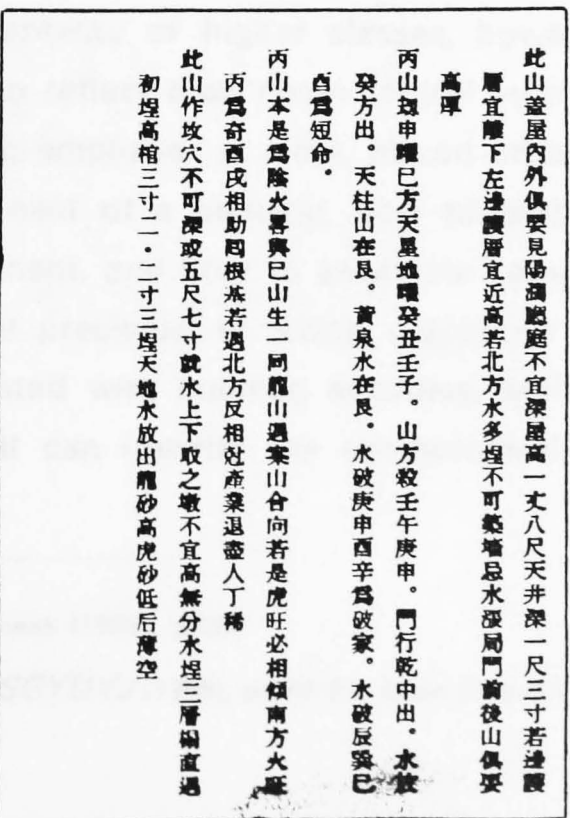 此山蓋屋內外俱要見陽溝廳庭不宜深屋高一丈八尺天井深一尺三寸若邊護
厝宜離下左邊護厝宜近高若北方水多埕不可築墻忌水漲局門前後山俱要
高厚
丙山劫申曜巳方天星地曜癸丑壬子。山方殺壬午庚申。門行乾中出。水放
癸方出。天柱山在艮。黃泉水在艮。水破庚申酉辛爲破家。水破辰巽巳
酉爲短命。
丙山本是爲陰火喜與巳山生。同龍山遇案山合向若是虎旺必相似南方火旺
丙爲奇酉戌相助固根基若遇北方反相尅產業退盡人丁稀
此山作坟穴不可深或五尺七寸就水上下取之墩不宜高無分水埕三層揭直過
初埕高棺三寸二。二寸三埕天地水放出龍砂高虎砂低后薄空